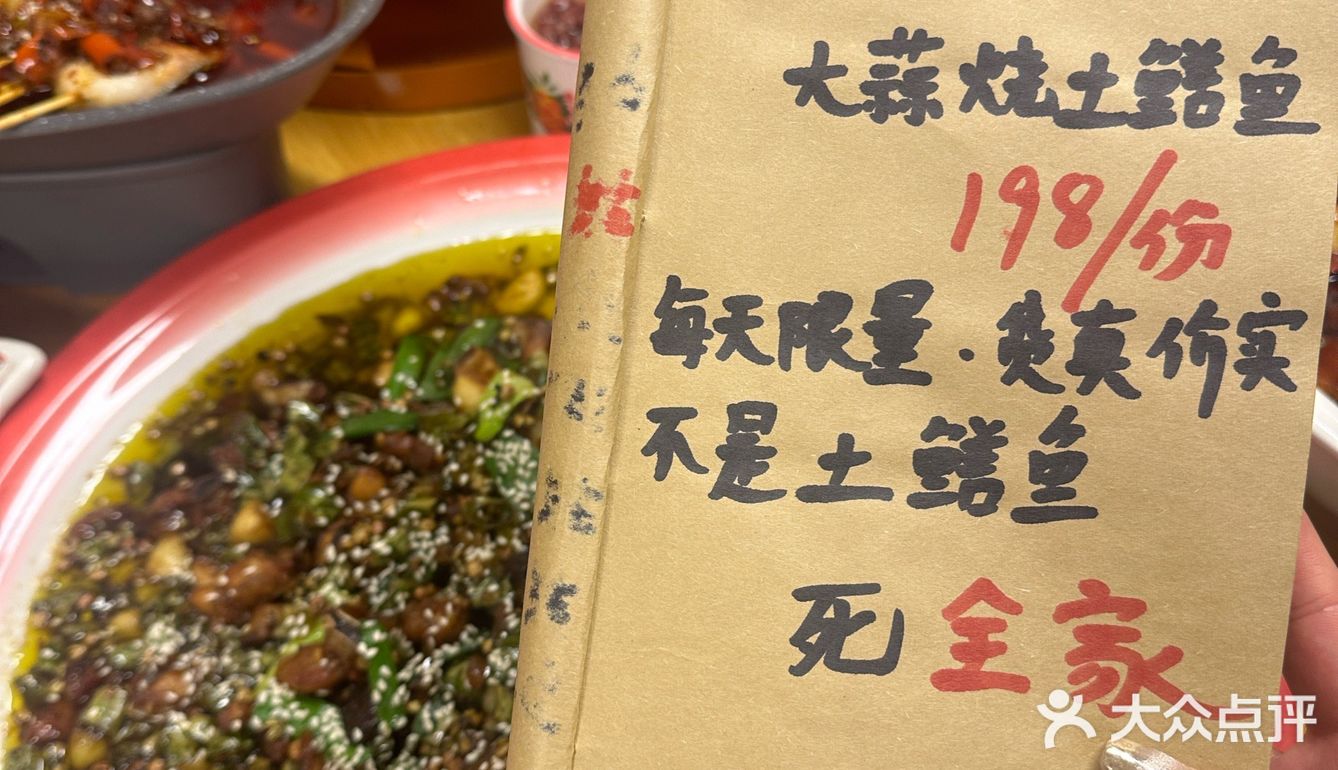 大蒜烧土鳝鱼
198/份
每天限量.货真价实
不是土鳝鱼
死全家
大众点评